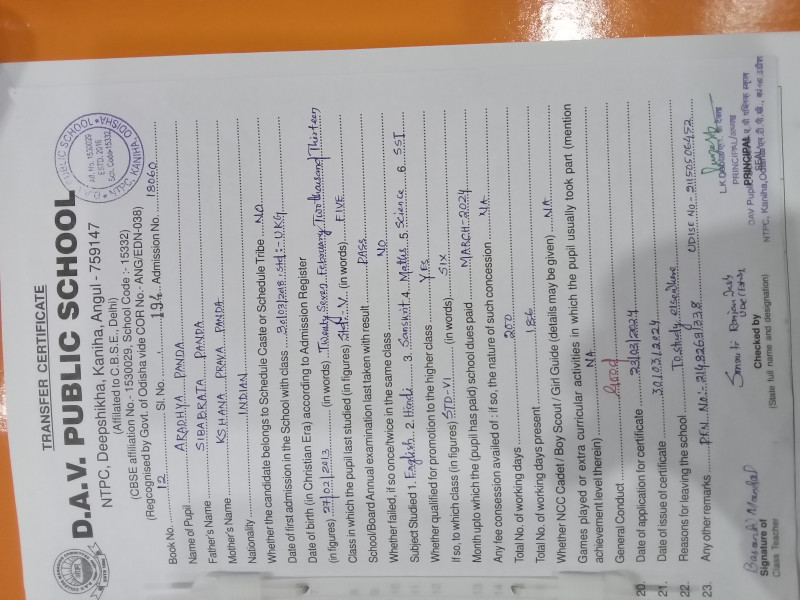 TRANSFER CERTIFICATE
D.A.V. PUBLIC SCHOOL
NTPC, Deepshikha, Kaniha, Angul - 759147
(Affiliated to C.B.S.E., Delhi)
(CBSE affiliation No. - 1530029, School Code :- 15332)
(Regcognised by Govt. of Odisha vide COR No.- ANG/EDN-038)
PUBLIC SCHOOL
Aff. No. 1530029
ESTD. 2016
Sch. Code-15332
NTPC, KANIHA, ODISHA
Book No. 12 Sl. No. 194 Admission No. 18060
Name of Pupil ARADHYA PANDA
Father's Name SIBABRATA PANDA
Mother's Name KSHANA PRAVA PANDA
Nationality INDIAN
Whether the candidate belongs to Schedule Caste or Schedule Tribe NO
Date of first admission in the School with class 31/03/2018 Std:- UKG
Date of birth (in Christian Era) according to Admission Register
(in figures) 27/02/2013 (in words) Twenty Seven February Two thousand Thirteen
Class in which the pupil last studied (in figures) Std:- V (in words) FIVE
School/Board Annual examination last taken with result PASS
Whether failed, if so once/twice in the same class NO
Subject Studied 1. English 2. Hindi 3. Sanskrit 4. Maths 5. Science 6. SST
Whether qualified for promotion to the higher class YES
If so, to which class (in figures) STD-VI (in words) SIX
Month upto which the (pupil has paid) school dues paid MARCH-2024
Any fee consession availed of : if so, the nature of such concession NA
Total No. of working days 200
Total No. of working days present 186
Whether NCC Cadet / Boy Scout / Girl Guide (details may be given) NA
Games played or extra curricular activities in which the pupil usually took part (mention
achievement level therein) NA
General Conduct Good
20. Date of application for certificate 23/03/2024
21. Date of issue of certificate 30/03/2024
22. Reasons for leaving the school To study elsewhere
23. Any other remarks PEN No:- 21432691338 UDISE No- 21150506452
Basanti Mandal
Signature of
Class Teacher
Checked by
(State full name and designation)
PRINCIPAL
SEAL